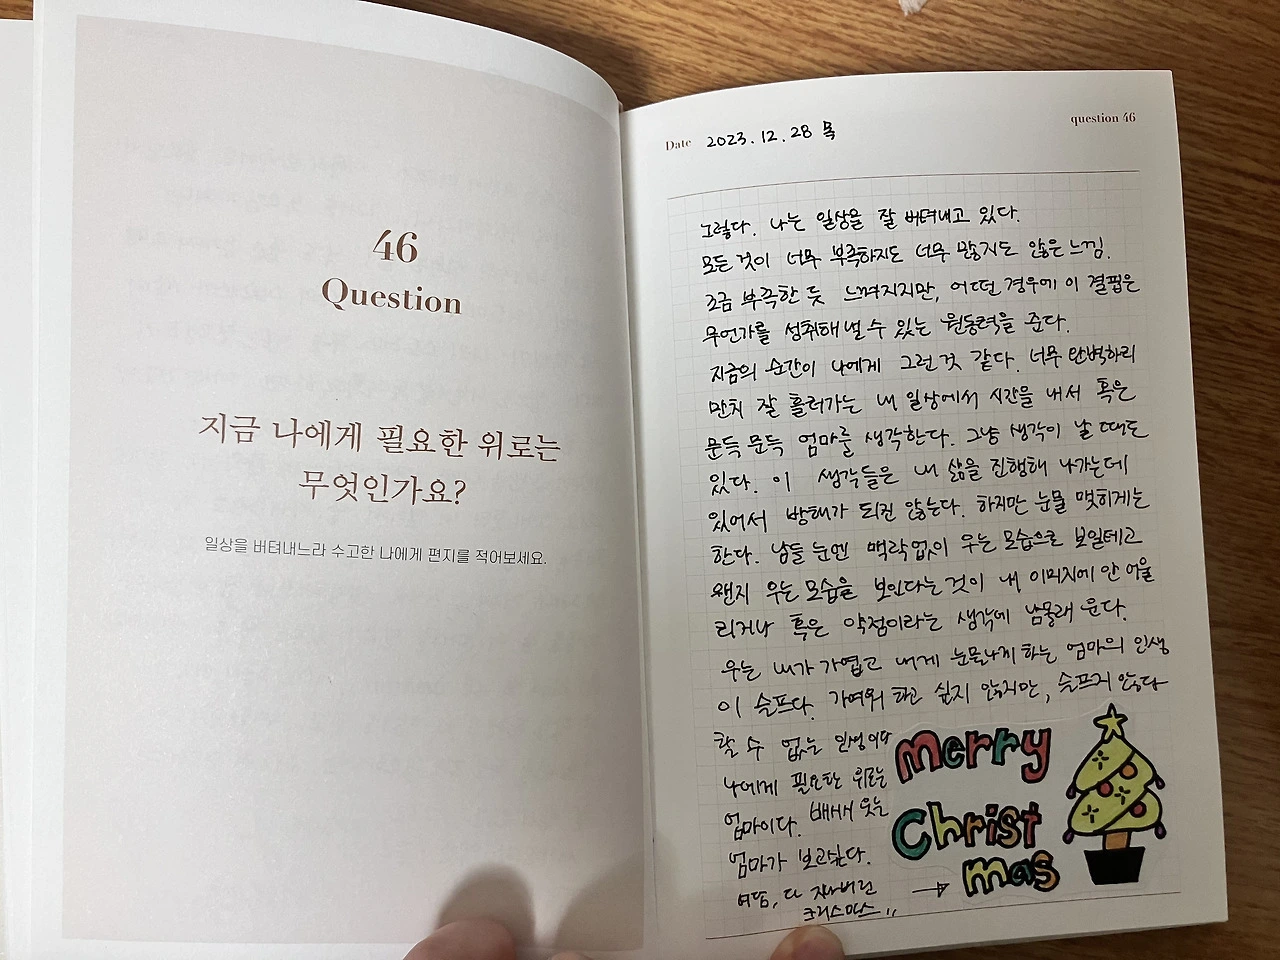 46
Question
지금 나에게 필요한 위로는
무엇인가요?
일상을 버텨내느라 수고한 나에게 편지를 적어보세요.
Date 2023.12.28 목
question 46
그렇다. 나는 일상을 잘 버텨내고 있다.
모든 것이 너무 부족하지도 너무 많지도 않은 느낌.
조금 부족한 듯 느껴지지만, 어떤 경우에 이 결핍은
무언가를 성취해낼 수 있는 원동력을 준다.
지금의 순간이 나에게 그런 것 같다. 너무 완벽하리
만치 잘 흘러가는 내 일상에서 시간을 내서 혹은
문득 문득 엄마를 생각한다. 그냥 생각이 날 때도
있다. 이 생각들은 내 삶을 진행해 나가는데
있어서 방해가 되진 않는다. 하지만 눈물 맺히게는
한다. 남들 눈엔 맥락없이 우는 모습으로 보일테고
왠지 우는 모습을 보인다는 것이 내 이미지에 안 어울
리거나 혹은 약점이라는 생각에 남몰래 운다.
우는 내가 가엽고 내게 눈물나게 하는 엄마의 인생
이 슬프다. 가여워 하고 싶지 않지만, 슬프지 않다
할 수 없는 인생이다
나에게 필요한 위로는
엄마이다. 배시시 웃는
엄마가 보고싶다.
다 지나버린
크리스마스
Merry
Christ
mas